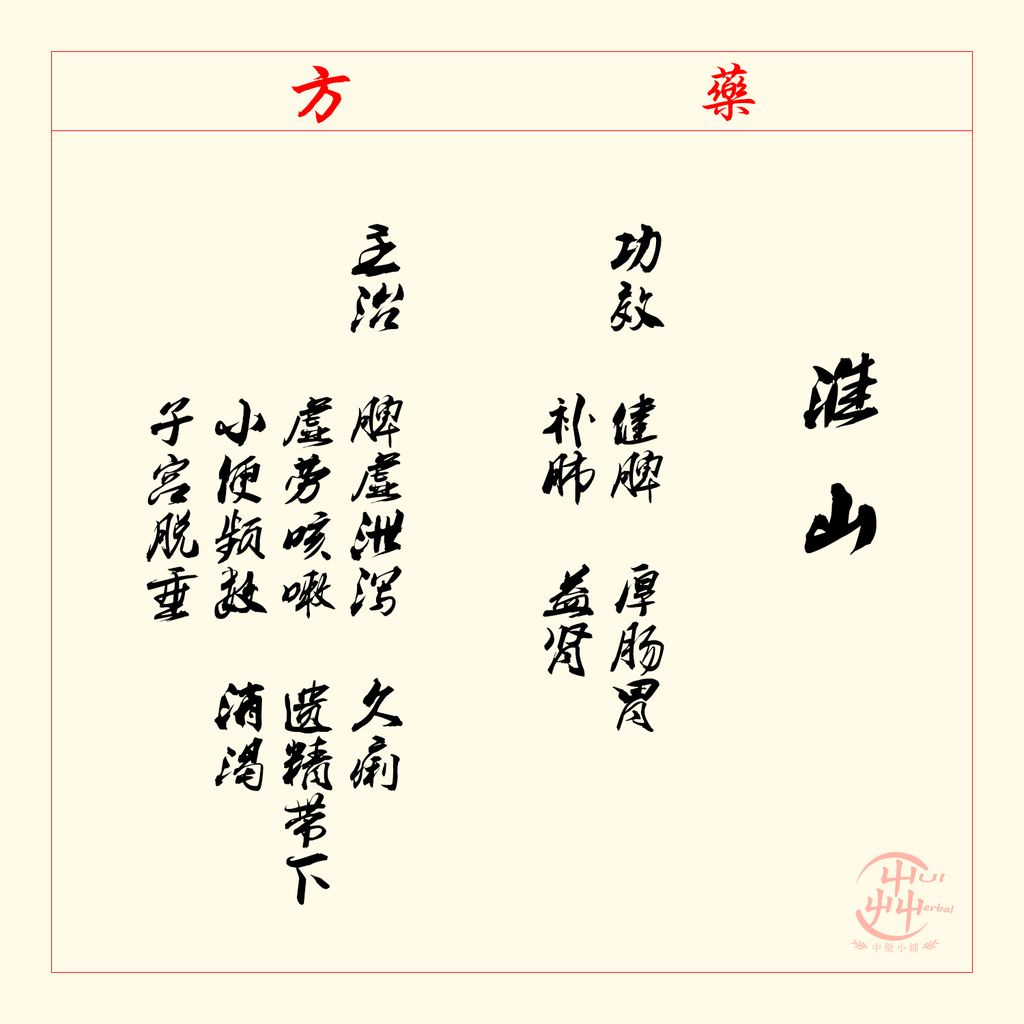 藥方
淮山
功效 健脾 厚肠胃
补肺 益肾
主治 脾虚泄泻 久痢
虚劳咳嗽 遗精带下
小便频数 消渴
子宫脱垂
HUI
Herbal
中藥小鋪